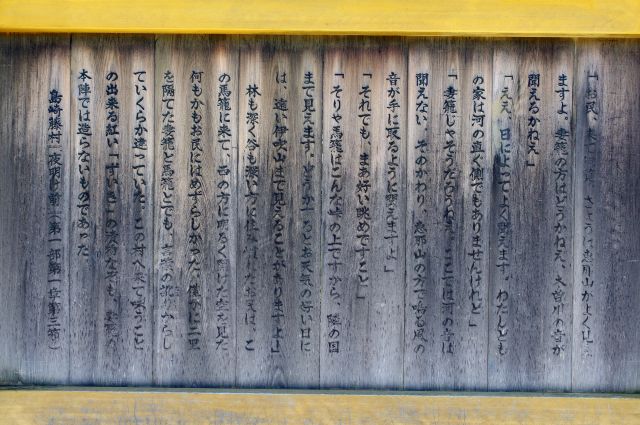 「お民、来て　　。きょうは恵那山がよく見え
ますよ。妻籠の方はどうかねえ、木曽川の音が
聞えるかねえ」
「ええ、日によってよく聞えます。わたしども
の家は河の直ぐ側でもありませんけれど」
「妻籠じゃそうだろうねえ。ここでは河の音は
聞えない。そのかわり、恵那山の方で鳴る風の
音が手に取るように聞えますよ」
「それでも、まあ好い眺めですこと」
「そりゃ馬籠はこんな峠の上ですから、隣の国
まで見えます。どうかするとお天気の好い日に
は、遠い伊吹山まで見えることがありますよ」
林も深く谷も深い方に住み慣れたお民は、こ
の馬籠に来て、西の方に明るく開けた空を見た
何もかもお民にはめずらしかった。僅かに二里
を隔てた妻籠と馬籠とでも、言葉の訛りからし
ていくらか違っていた。この村へ来て味うこと
の出来る紅い「ずいき」の漬物なぞも、妻籠の
本陣では造らないものであった
島崎藤村「夜明け前」（第一部第一章第三節）